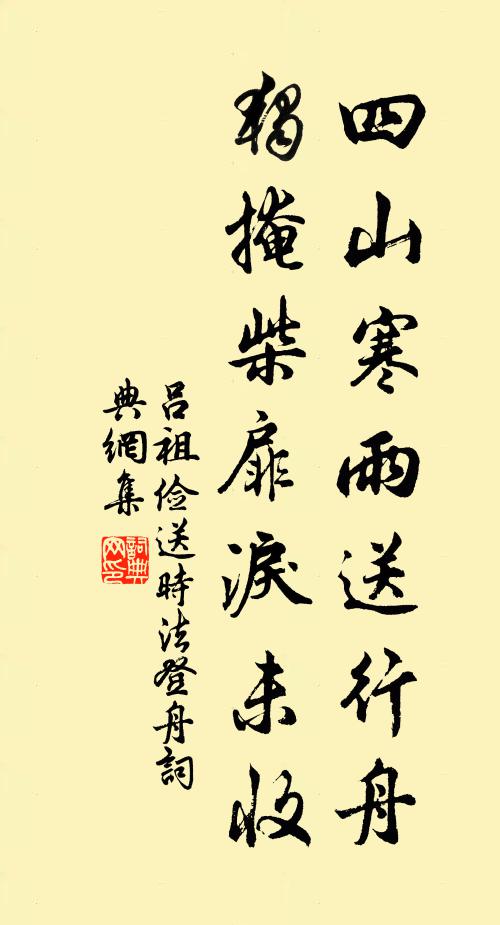 四山寒雨送行舟
獨掩柴扉淚未收
呂祖儉送時法登舟詞
典網集
詞典網印